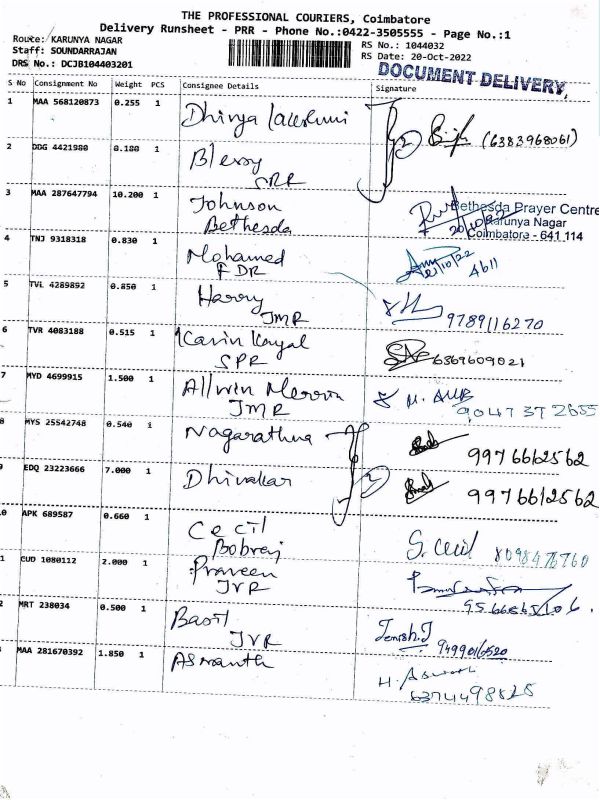 THE PROFESSIONAL COURIERS, Coimbatore
Delivery Runsheet - PRR - Phone No.:0422-3505555 - Page No.:1
Route: KARUNYA NAGAR
RS No.: 1044032
Staff: SOUNDARRAJAN
RS Date: 20-Oct-2022
DRS No.: DCJB104403201
DOCUMENT DELIVERY,
S No Consignment No Weight PCS Consignee Details Signature
1 MAA 568120873 0.255 1 Dhivya Lakshmi (6383968061)
2 DDG 4421980 0.180 1 Blessy
SRR
3 MAA 287647794 10.200 1 Johnson Bethesda Prayer Centre
Bethesda 20/10/22 Karunya Nagar
Coimbatore - 641 114
4 TNJ 9318318 0.830 1 Mohamed
FDR 21/10/22 4611
5 TVL 4289892 0.850 1 Harry
JMR 9789116270
6 TVR 4083188 0.515 1 Kavin Kayal
SPR 6369609021
7 MYD 4699915 1.500 1 Allwin Mervin
JMR 9047372655
8 MYS 25542748 0.540 1 Nagarathna 9976612562
9 EDQ 23223666 7.000 1 Dhivakar 9976612562
0 APK 689587 0.660 1 Cecil S. Cecil 8098476760
Bobraj
1 CUD 1080112 2.000 1 Praveen
JVR
2 MRT 238034 0.500 1 Basil Jenish.J
JVR 9499016520
MAA 281670392 1.850 1 Aswanth H. Aswath
6374498825